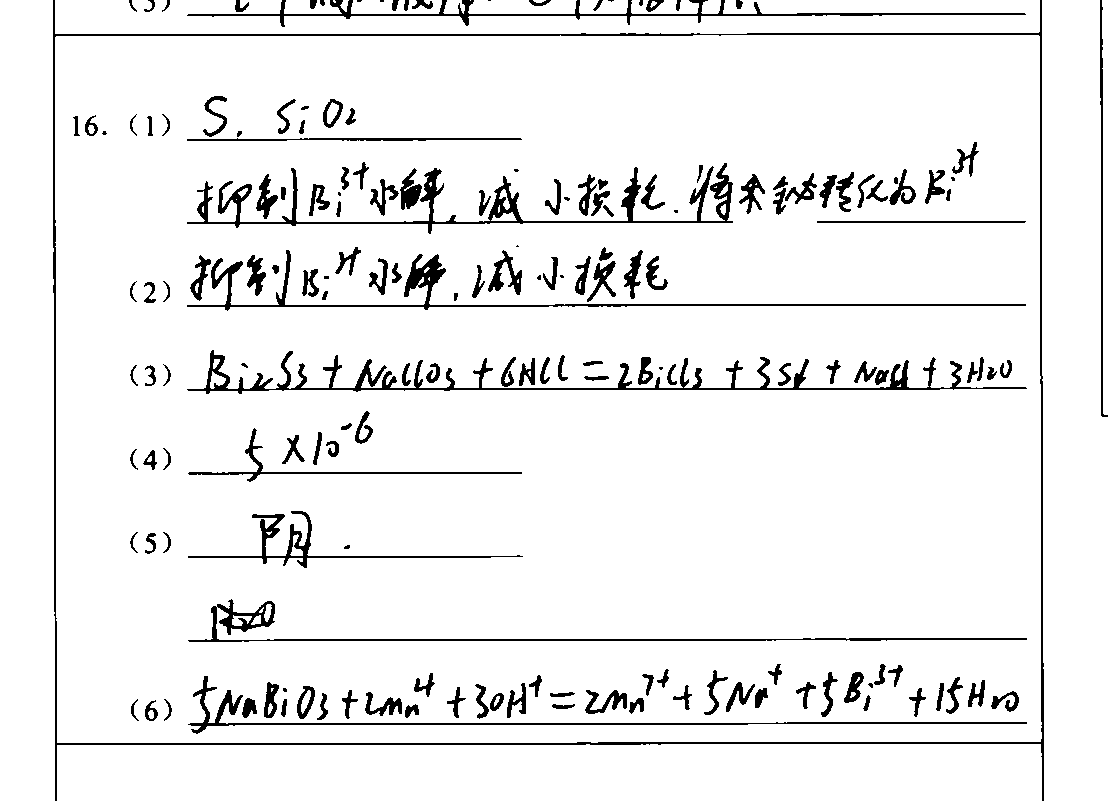 (5)
16.(1) S. SiO₂
抑制Bi³⁺水解,减小损耗.将余铋转化为Bi³⁺
(2) 抑制Bi³⁺水解,减小损耗
(3) Bi₂S₃ + NaClO₃ + 6HCl = 2BiCl₃ + 3S↓ + NaCl + 3H₂O
(4) 5×10⁻⁶
(5) 阴.
(6) 5NaBiO₃ + 2Mn⁴ + 30H⁺ = 2Mn⁷⁺ + 5Na⁺ + 5Bi³⁺ + 15H₂O